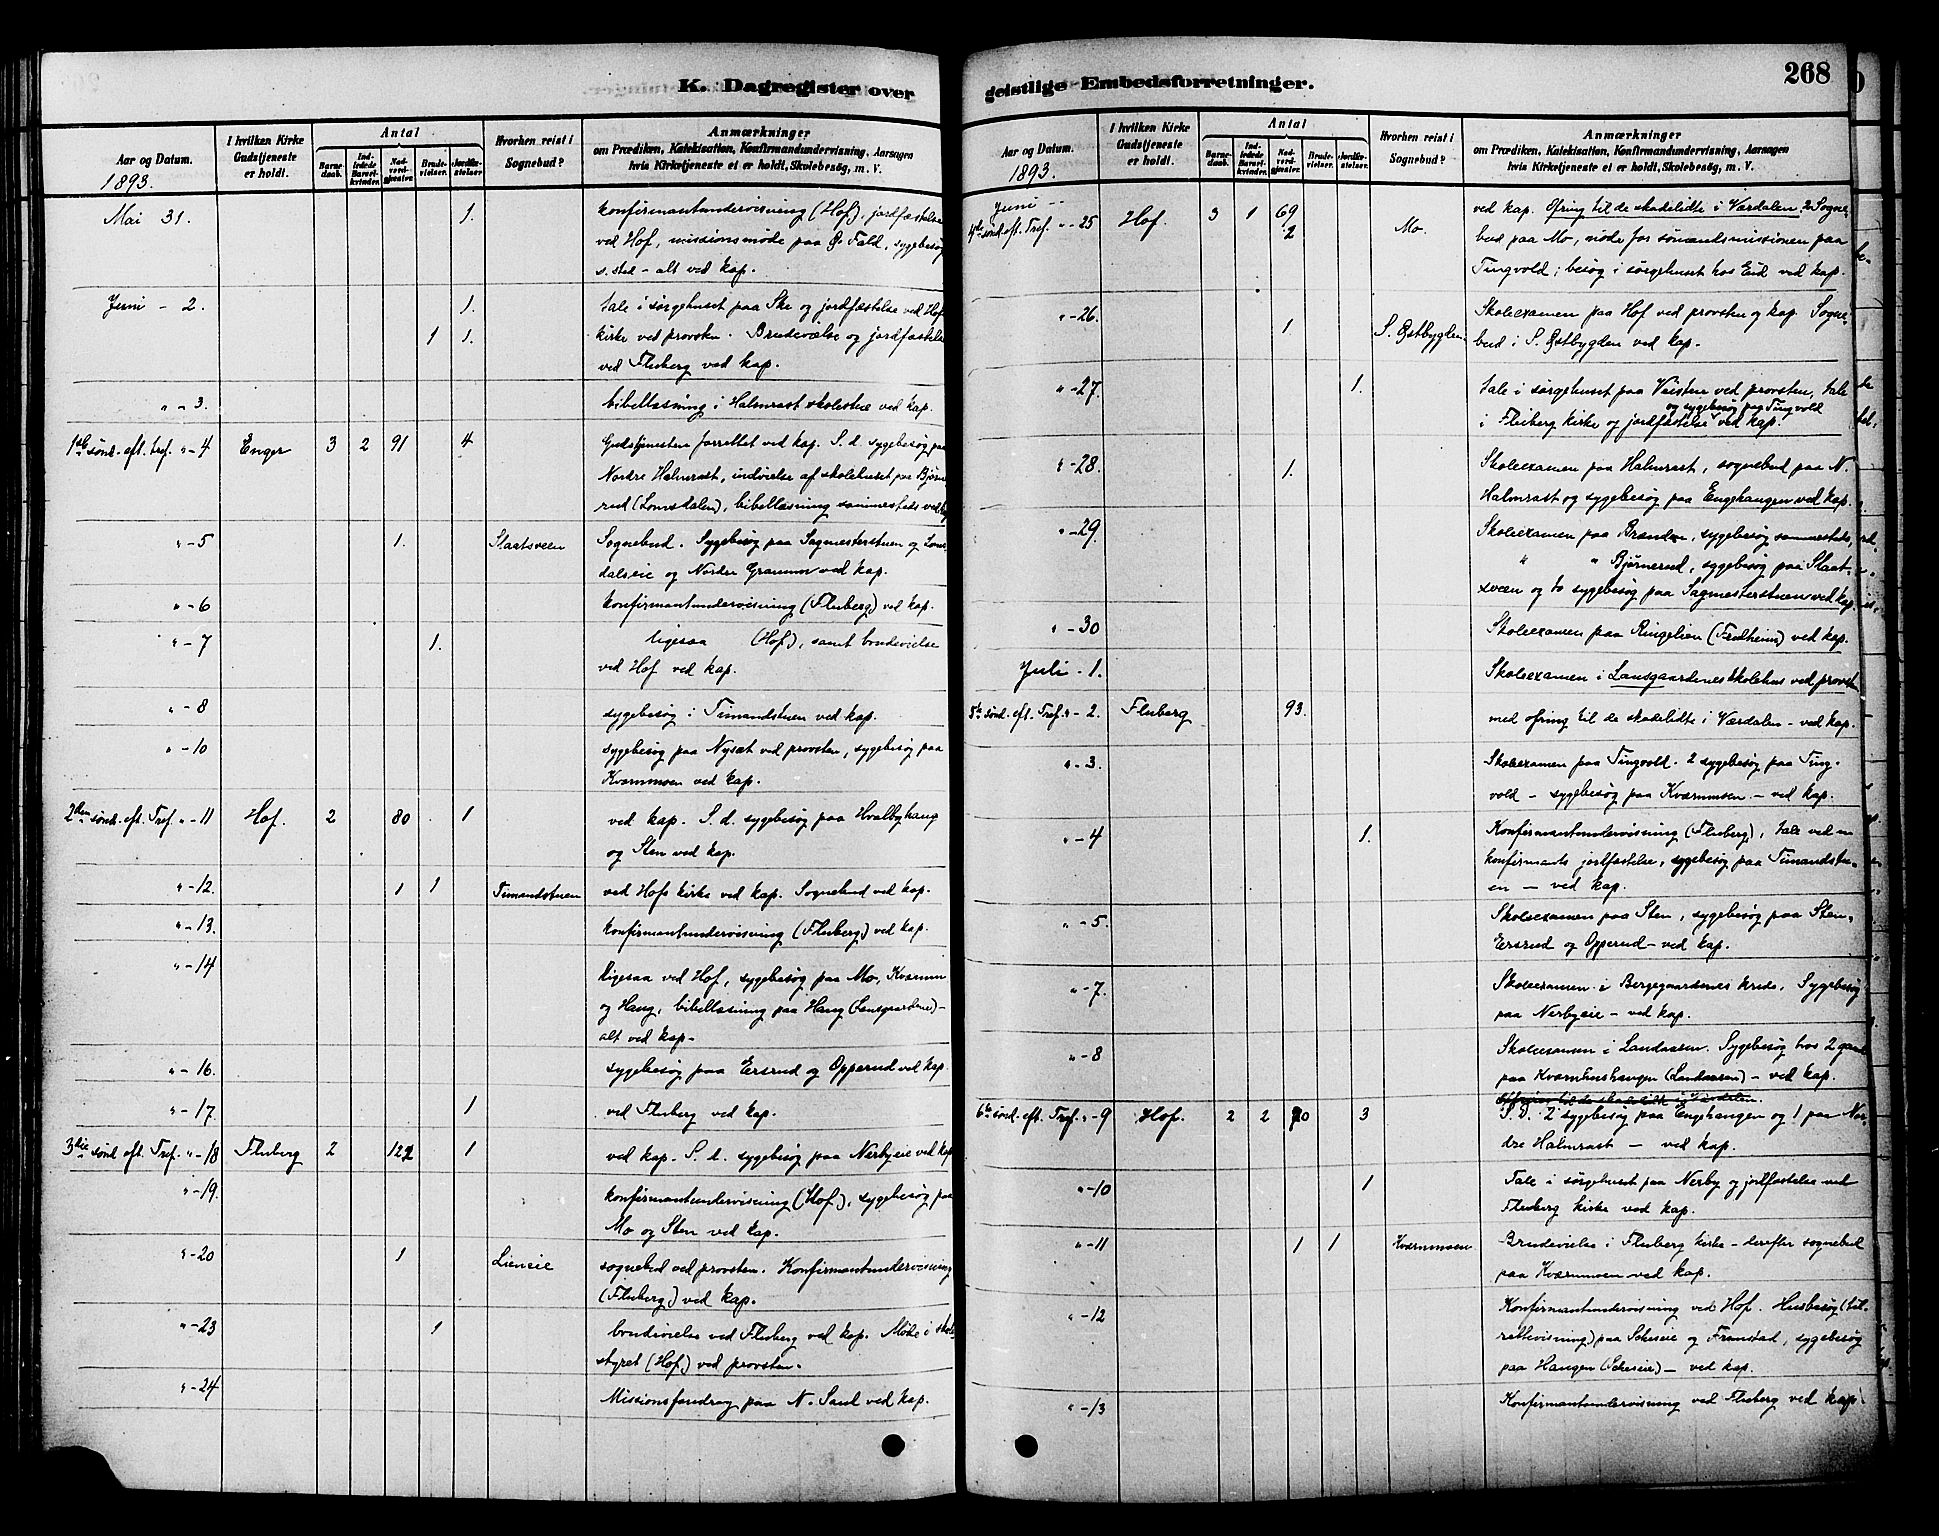 K. Dagregister over
Aar og Datum.
1893.
I hvilken Kirke
Gudstjeneste
er holdt.
Antal
Barne-
daab.
Ind-
ledede
Barsel-
kvinder.
Nad-
verd-
gjester.
Brude-
vielser.
Jordfæ-
stelser
Hvorhen reist i
Sognebud?
Anmærkninger
om Prædiken, Katekisation, Konfirmandundervisning, Aarsagen
hvis Kirketjeneste ei er holdt, Skolebesøg, m. V.
Mai 31. 1. Konfirmantundervisning (Hof), jordfæstelse
ved Hof, missionsmøde paa Fald, sygebesøg
s. sted - alt ved kap.
Juni - 2. 1. tale i sørgehuset paa Ske og jordfæstelse ved Hof
1 1. kirke ved provsten. Brudevielse og jordfæstelse
ved Fluberg ved kap.
" - 3. bibellæsning i Halmrast skolestue ved kap.
1ste sønd. eft. tref. " - 4 Enger 3 2 91 4 Gudstjenesten forrettet ved kap. S. d. sygebesøg paa
Nordre Halmrast, indvielse af skolehuset paa Bjørne
rud (Lomsdalen), bibellæsning sammesteds ved kap
" - 5 1. Slaatsveen Sognebud. Sygebesøg paa Sagmesterstuen og Loms
dalseie og Nordre ved kap.
" - 6 Konfirmantundervisning (Fluberg) ved kap.
" - 7 1. ligesaa (Hof), samt brudevielse
ved Hof ved kap.
" - 8 sygebesøg i Timandstuen ved kap.
" - 10 sygebesøg paa Nysæt ved provsten, sygebesøg paa
Kværnmoen ved kap.
2den sønd. eft. Tref. " - 11 Hof. 2 80 1 ved kap. S. d. sygebesøg paa Hvalbyhaug
og Sten ved kap.
" - 12. 1 1 Timandstuen ved Hofs kirke ved kap. Sognebud ved kap.
" - 13. Konfirmantundervisning (Fluberg) ved kap.
" - 14 ligesaa ved Hof, sygebesøg paa Mo, Kværnum
og Haug, bibellæsning paa Haug (Lansgaardene) -
alt ved kap -
" - 16. sygebesøg paa Ersrud og Opperud ved kap.
" - 17 1 ved Fluberg ved kap.
3die sønd. eft. Tref. " - 18 Fluberg 2 122 1 ved kap. S. d. sygebesøg paa Nerbyeie ved kap
" - 19. Konfirmantundervisning (Hof), sygebesøg paa
Mo og Sten ved kap.
" - 20 1 Lieneie sognebud ved provsten. Konfirmantundervisning
(Fluberg) ved kap.
" - 23 1 brudevielse ved Fluberg ved kap. Møde i skole
styret (Hof) ved provsten.
" - 24 Missionsforedrag paa N. Sand ved kap.
geistlige Embedsforretninger.
268
Aar og Datum.
1893.
I hvilken Kirke
Gudstjeneste
er holdt.
Antal
Barne-
daab.
Ind-
ledede
Barsel-
kvinder.
Nad-
verd-
gjester.
Brude-
vielser.
Jordfæ-
stelser
Hvorhen reist i
Sognebud?
Anmærkninger
om Prædiken, Katekisation, Konfirmandundervisning, Aarsagen
hvis Kirketjeneste ei er holdt, Skolebesøg, m. V.
Juni
4de sønd. eft. Tref. " - 25 Hof. 3 1 69 ved kap. Ofring til de skadelidte i Værdalen. 2 Sogne-
2 Mo. bud paa Mo, møde for sømandsmissionen paa
Tingvold; besøg i sørgehuset hos Eid ved kap.
" - 26. Skoleexamen paa Hof ved provsten og kap. Sogne-
1. S. Østbygden. bud i S. Østbygden ved kap.
" - 27. 1. tale i sørgehuset paa ved provsten, tale
og sygebesøg paa Tingvold
i Fluberg kirke og jordfæstelse ved kap.
" - 28. 1. Skoleexamen paa Halmrast, sognebud paa N.
Halmrast og sygebesøg paa Engehaugen ved kap.
" - 29. Skoleexamen paa Brænden, sygebesøg sammesteds,
" " Bjørnerud, sygebesøg paa Slaat-
sveen og to sygebesøg paa Sagmesterstuen ved kap.
" - 30 Skoleexamen paa Ringelien (Fredheim) ved kap.
Juli - 1. Skoleexamen i Lansgaardenes skolehus ved provsten
5te sønd. eft. Tref. " - 2. Fluberg 93. med ofring til de skadelidte i Værdalen - ved kap.
" - 3. Skoleexamen paa Tingvold. 2 sygebesøg paa Ting-
vold - sygebesøg paa Kværnmoen - ved kap.
" - 4 1. Konfirmantundervisning (Fluberg), tale ved en
konfirmants jordfæstelse, sygebesøg paa Timandstu-
en - ved kap.
" - 5. Skoleexamen paa Sten, sygebesøg paa Sten,
Ersrud og Opperud - ved kap.
" - 7. Skoleexamen i Bergegaardenes kreds. Sygebesøg
paa Nerbyeie - ved kap.
" - 8 Skoleexamen i Landaasen. Sygebesøg hos 2 gamle
paa Kværnhushaugen (Landaasen) - ved kap.
6te sønd. eft. Tref. " - 9 Hof. 2 2 20 3 S. d. 2 sygebesøg paa Engehaugen og 1 paa Nor-
dre Halmrast - ved kap.
" - 10 1 Tale i sørgehuset paa Nerby og jordfæstelse ved
Fluberg kirke ved kap.
" - 11 1 1 Kværnmoen Brudevielse i Fluberg kirke - derefter sognebud
paa Kværnmoen ved kap.
" - 12 Konfirmantundervisning ved Hof. Husbesøg (til-
rettevisning) paa Skeseie og Framstad, sygebesøg
paa Haugen (Skeseie) - ved kap.
" - 13 Konfirmantundervisning ved Fluberg ved kap.